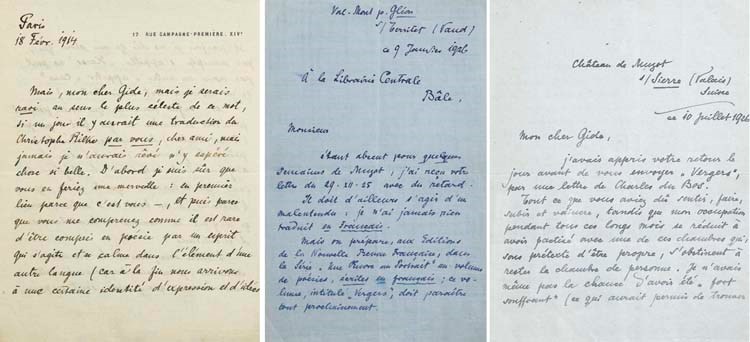 Paris
18 Févr. 1914
17. RUE CAMPAGNE-PREMIÈRE. XIVᵉ
Mais, mon cher Gide, mais je serais
ravi au sens le plus céleste de ce mot,
si un jour il y aurait une traduction du
Christophe Rilke par vous, cher ami, mais
jamais je n'aurais rêvé n'y espéré
chose si belle. D'abord je suis sûr que
vous en feriez une merveille : en premier
lieu parce que c'est vous —, et puis parce
que vous me comprenez comme il est rare
d'être compris en poésie par un esprit
qui s'agite et se calme dans l'élément d'une
autre langue (car à la fin nous arrivons
à une certaine identité d'expression et d'idées
Val-Mont p. Glion
s/Territet (Vaud)
ce 9 Janvier 1926
À la Librairie Centrale
Bâle,
Monsieur
étant absent pour quelques
semaines de Muzot, j'ai reçu votre
lettre du 29-20-25 avec du retard.
Il doit d'ailleurs s'agir d'un
malentendu : je n'ai jamais rien
traduit en Français.
Mais on prépare, aux Editions
de la Nouvelle Revue Française, dans
la Série "Une Œuvre un Portrait" un volume
de poésies, écrites en français ; ce vo-
lume, intitulé "Vergers", doit paraître
tout prochainement.
Château de Muzot
s/Sierre (Valais)
Suisse
ce 10 juillet 1926
Mon cher Gide,
j'avais appris votre retour le
jour avant de vous envoyer "Vergers",
par une lettre de Charles du Bos.
Tout ce que vous aviez dû sentir, faire,
subir et vaincre, tandis que mon occupation
pendant tous ces longs mois se réduit à
avoir pactisé avec une de ces chambres qui,
sous prétexte d'être propre, s'obstinent à
rester la chambre de personne. Je n'avais
même pas la chance d'avoir été "fort
souffrant" (ce qui aurait permis de trouver